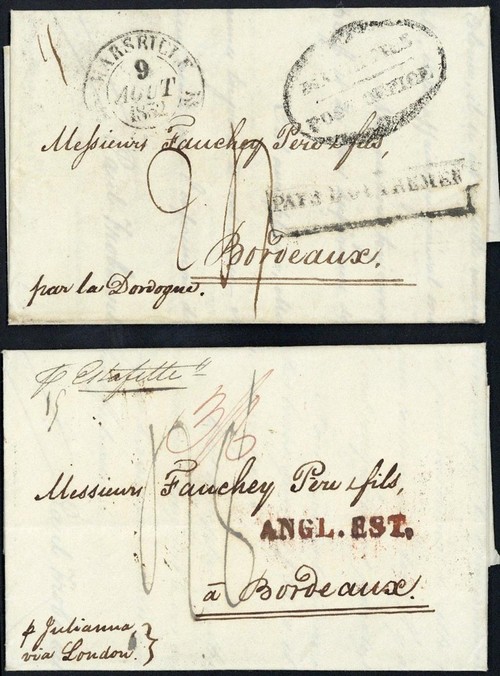 MARSEILLE
9
AOUT
1832
MAURITIUS
POST OFFICE
Messieurs Fauchey Pere & fils,
PAYS D'OUTREMER
Bordeaux.
par la Dordogne.
p Estafette
15
3/6
Messieurs Fauchey Pere & fils,
ANGL. EST.
à Bordeaux.
p Julianna
via London.